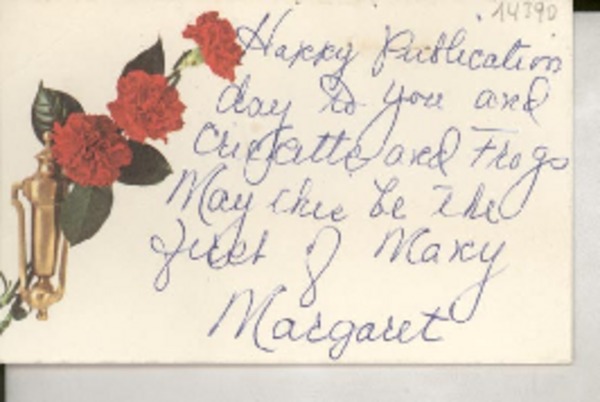 14390
Happy Publication
day to you and
and Frogs
May this be the
first of Many
Margaret